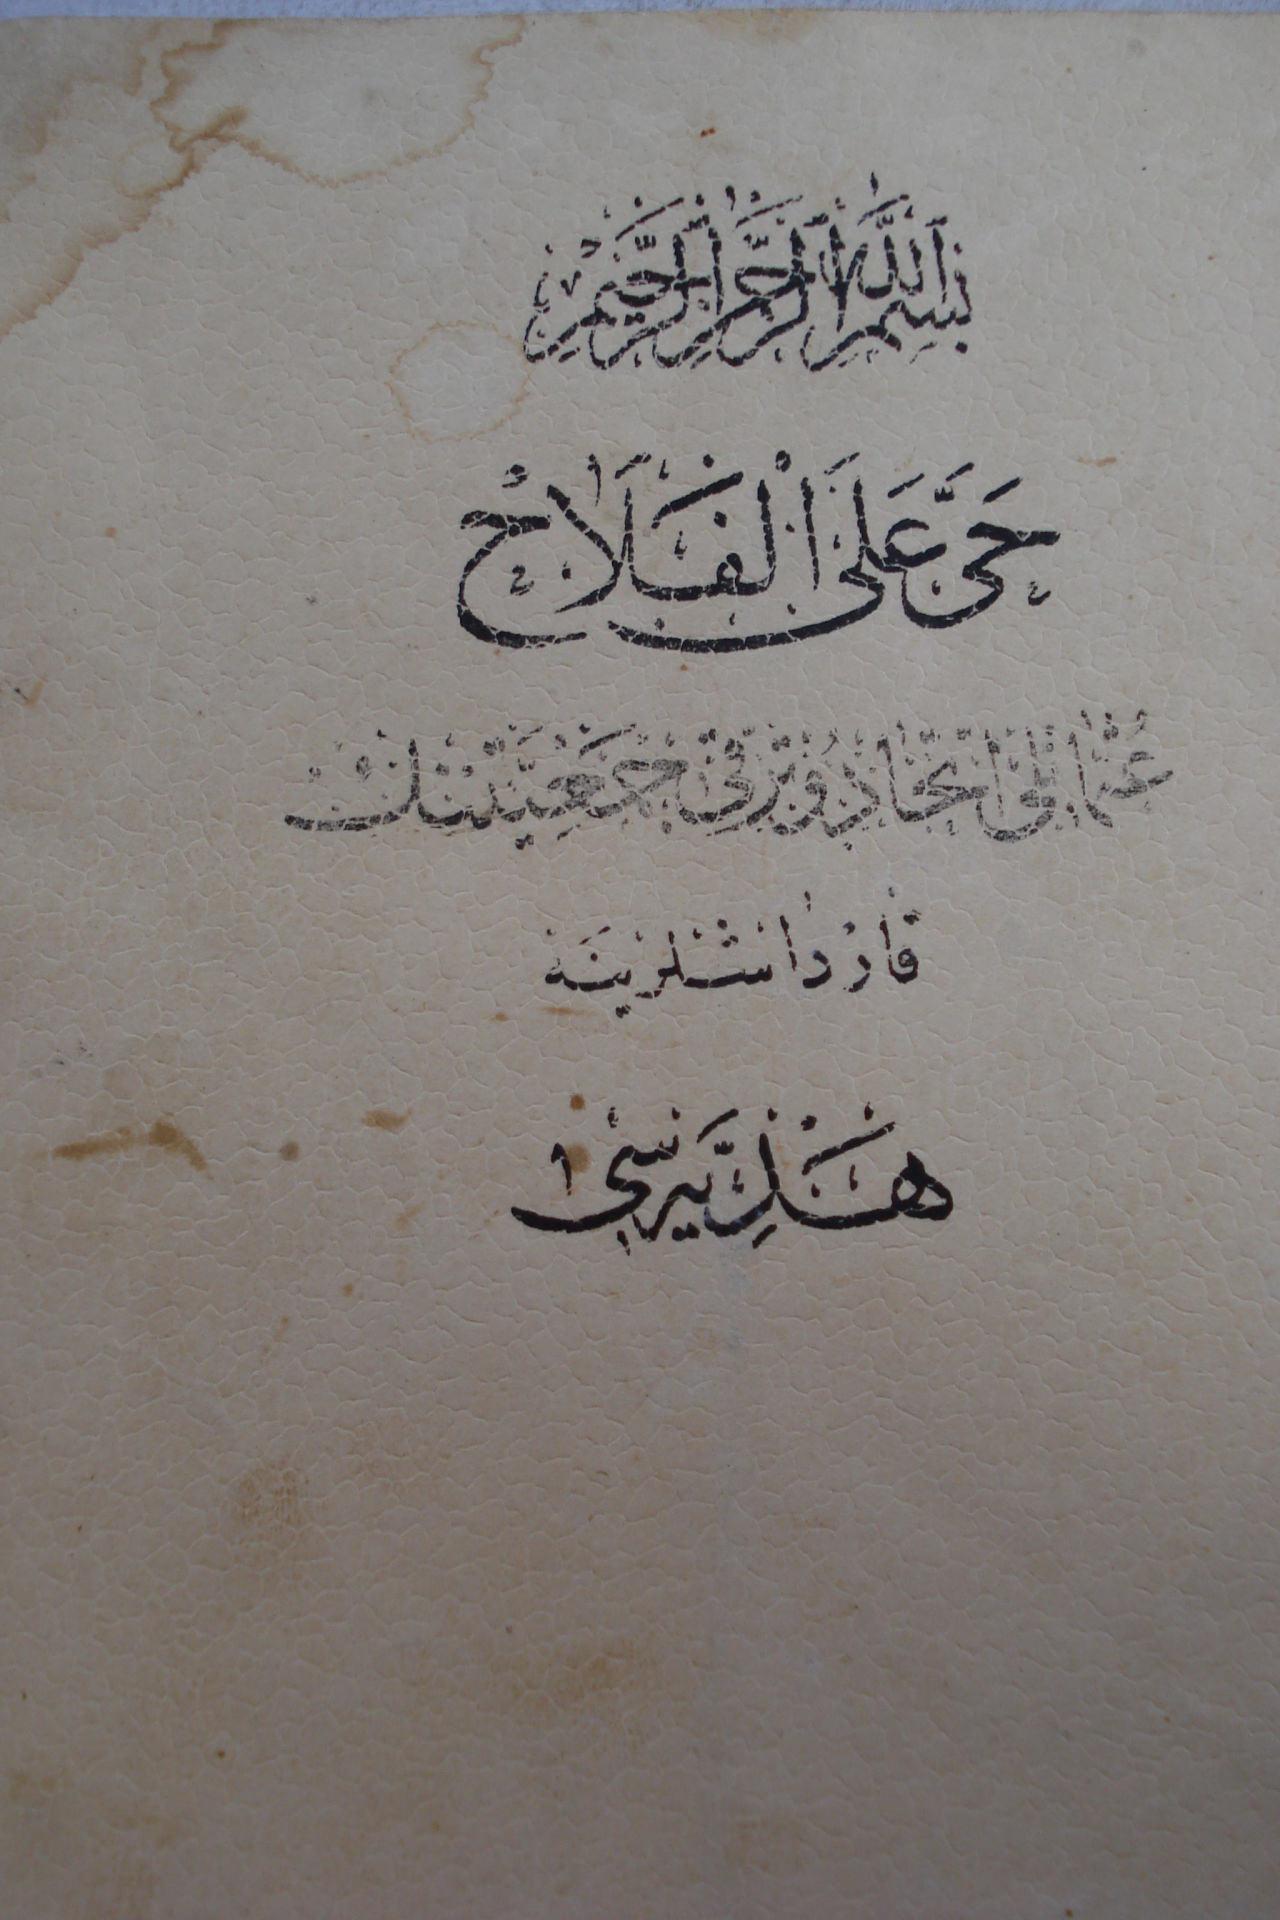 بِسْمِ اللّٰهِ الرَّحْمٰنِ الرَّحِيمِ
حَيَّ عَلَى الْفَلَاحْ
عُثْمَانْلِى اِتِّحَادْ وُ تَرَقِّى جَمْعِيَّتِنِكْ
قَارْدَاشْلَرِينَه
هَدِيَّه سِى